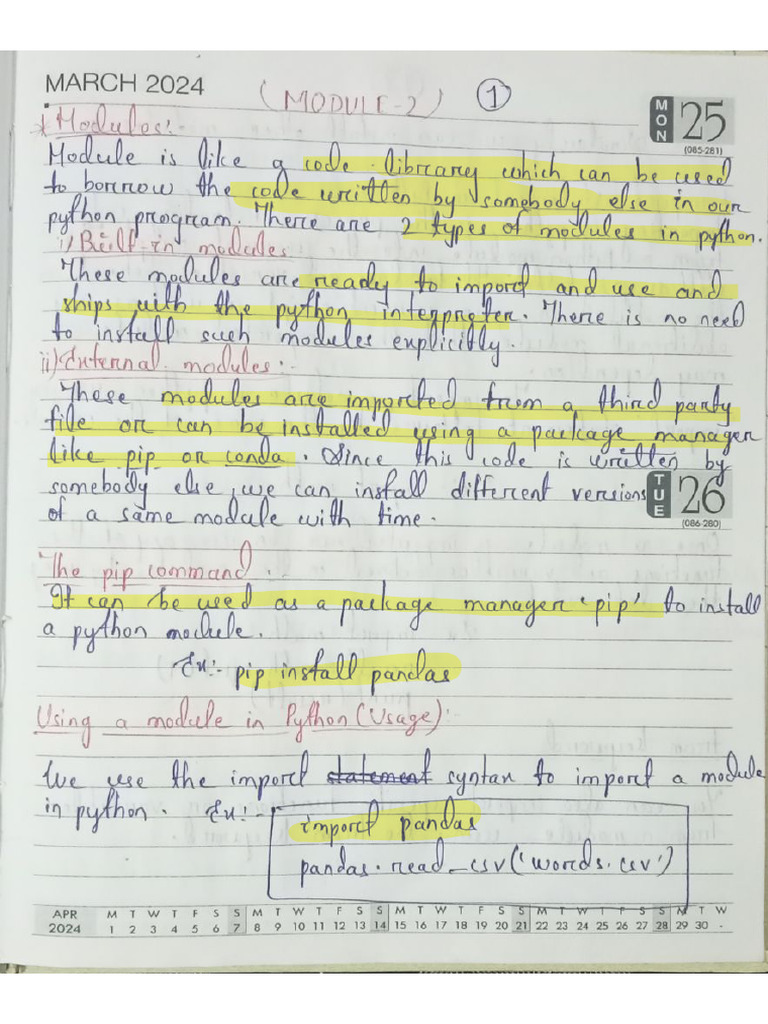 MARCH 2024
(MODULE-2) 1
MON 25
(085-281)
* Modules:-
Module is like a code library which can be used
to borrow the code written by somebody else in our
python program. There are 2 types of modules in python.
i) Built-in modules
These modules are ready to import and use and
ships with the python interpreter. There is no need
to install such modules explicitly.
ii) External modules:-
These modules are imported from a third party
file or can be installed using a package manager
like pip or conda. Since this code is written by
somebody else, we can install different versions
of a same module with time.
TUE 26
(086-280)
The pip command.
It can be used as a package manager 'pip' to install
a python module.
Ex:- pip install pandas
Using a module in Python (Usage):
We use the import statement syntax to import a module
in python. Ex:-
import pandas
pandas.read_csv('words.csv')
APR M T W T F S S M T W T F S S M T W T F S S M T W T F S S M T W
2024 1 2 3 4 5 6 7 8 9 10 11 12 13 14 15 16 17 18 19 20 21 22 23 24 25 26 27 28 29 30 -